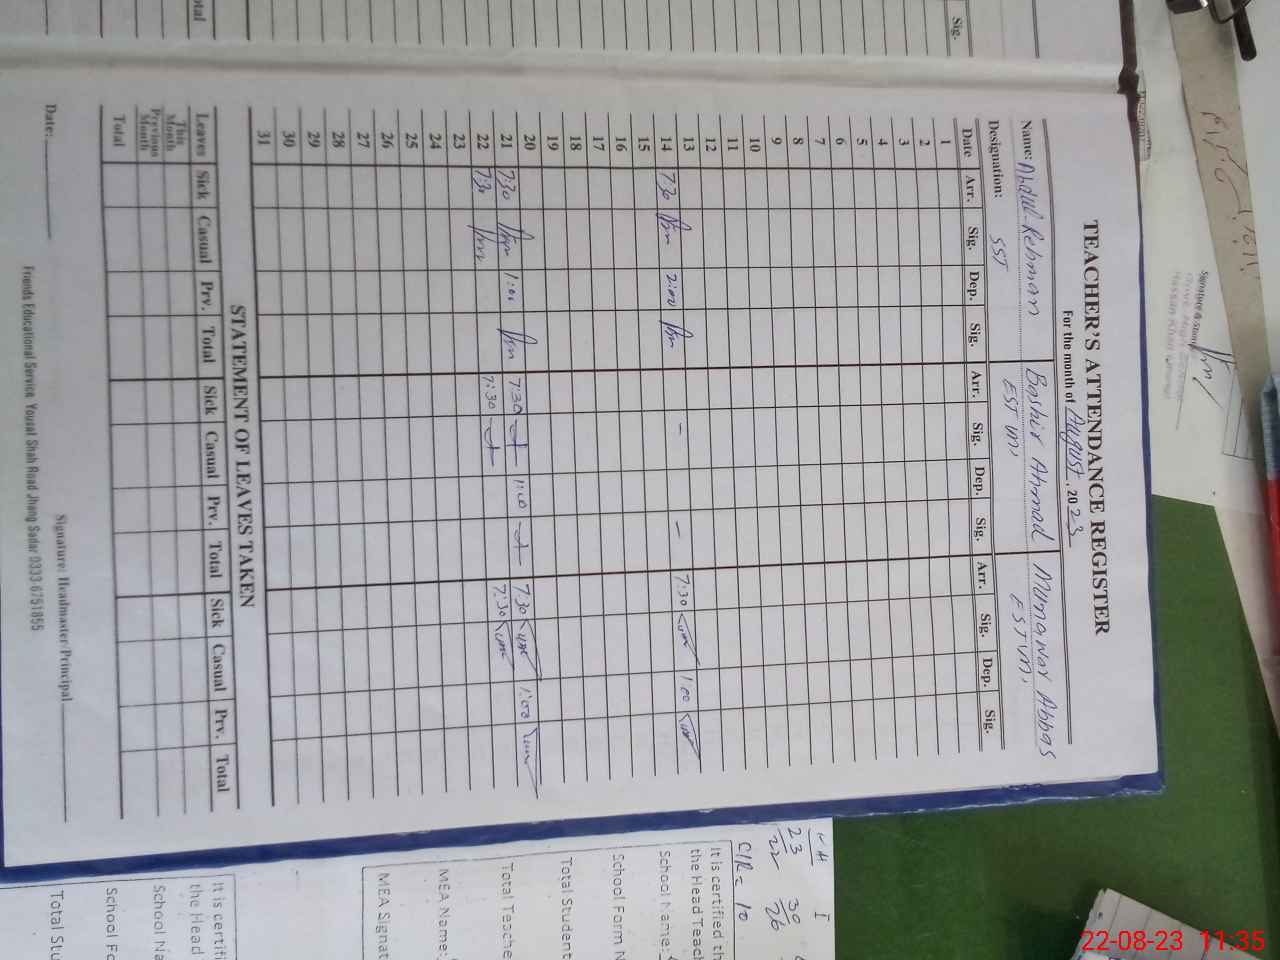 Sig.
TEACHER'S ATTENDANCE REGISTER
For the month of August. 2023
Name: Abdul-Rehman Bashir Ahmad Munawar Abbas
Designation: SST EST M, EST VM,
Date Arr. Sig. Dep. Sig. Arr. Sig. Dep. Sig. Arr. Sig. Dep. Sig.
1
2
3
4
5
6
7
8
9
10
11
12
13
14 7:30 2:00 - - 7:30 1:00
15
16
17
18
19
20
21 7:30 1:00 7:30 1:00 7:30 1:00
22 7:30 7:30 7:30
23
24
25
26
27
28
29
30
31
STATEMENT OF LEAVES TAKEN
Leaves Sick Casual Prv. Total Sick Casual Prv. Total Sick Casual Prv. Total
This Month
Previous Month
Total
Date: Signature: Headmaster/Principal
Friends Educational Service Yousaf Shah Road Jhang Sadar 0333-6751855
Signature & Stamp
Hassan Khan
I
23 30
22 26
C/R = 10
It is certified th
the Head Teach
School Name:
School Form N
Total Student
Total Teache
MEA Name:
MEA Signat
It is certifi
the Head
School Na
School Fo
Total Stu
22-08-23 11:35